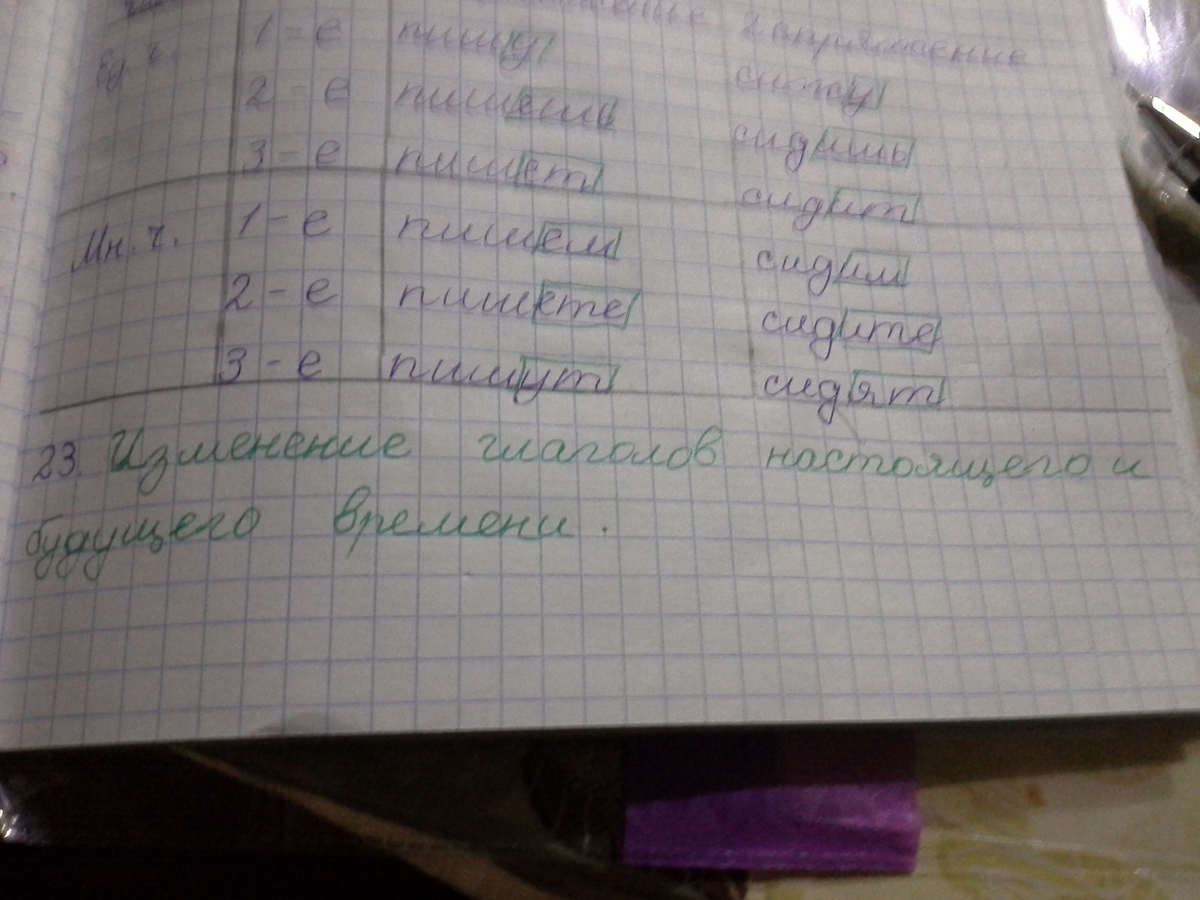 2 спряжение
Ед. ч. 1-е пишу сижу
2-е пишешь сидишь
3-е пишет сидит
Мн. ч. 1-е пишем сидим
2-е пишете сидите
3-е пишут сидят
23. Изменение глаголов настоящего и
будущего времени.